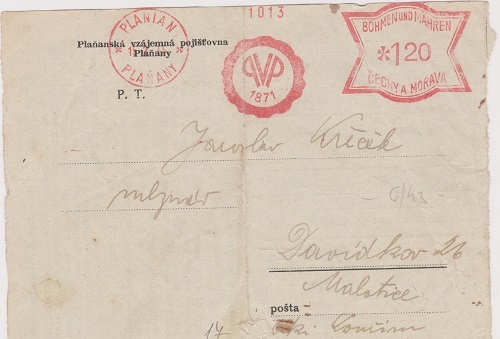 1013
PLANIAN
PLAŇANY
Plaňanská vzájemná pojišťovna
Plaňany
PVP
1871
BÖHMEN UND MÄHREN
1 20
ČECHY A MORAVA
P. T.
Jaroslav Krčák
mlynář
6/43
Davídkov 26
Malotice
pošta
17